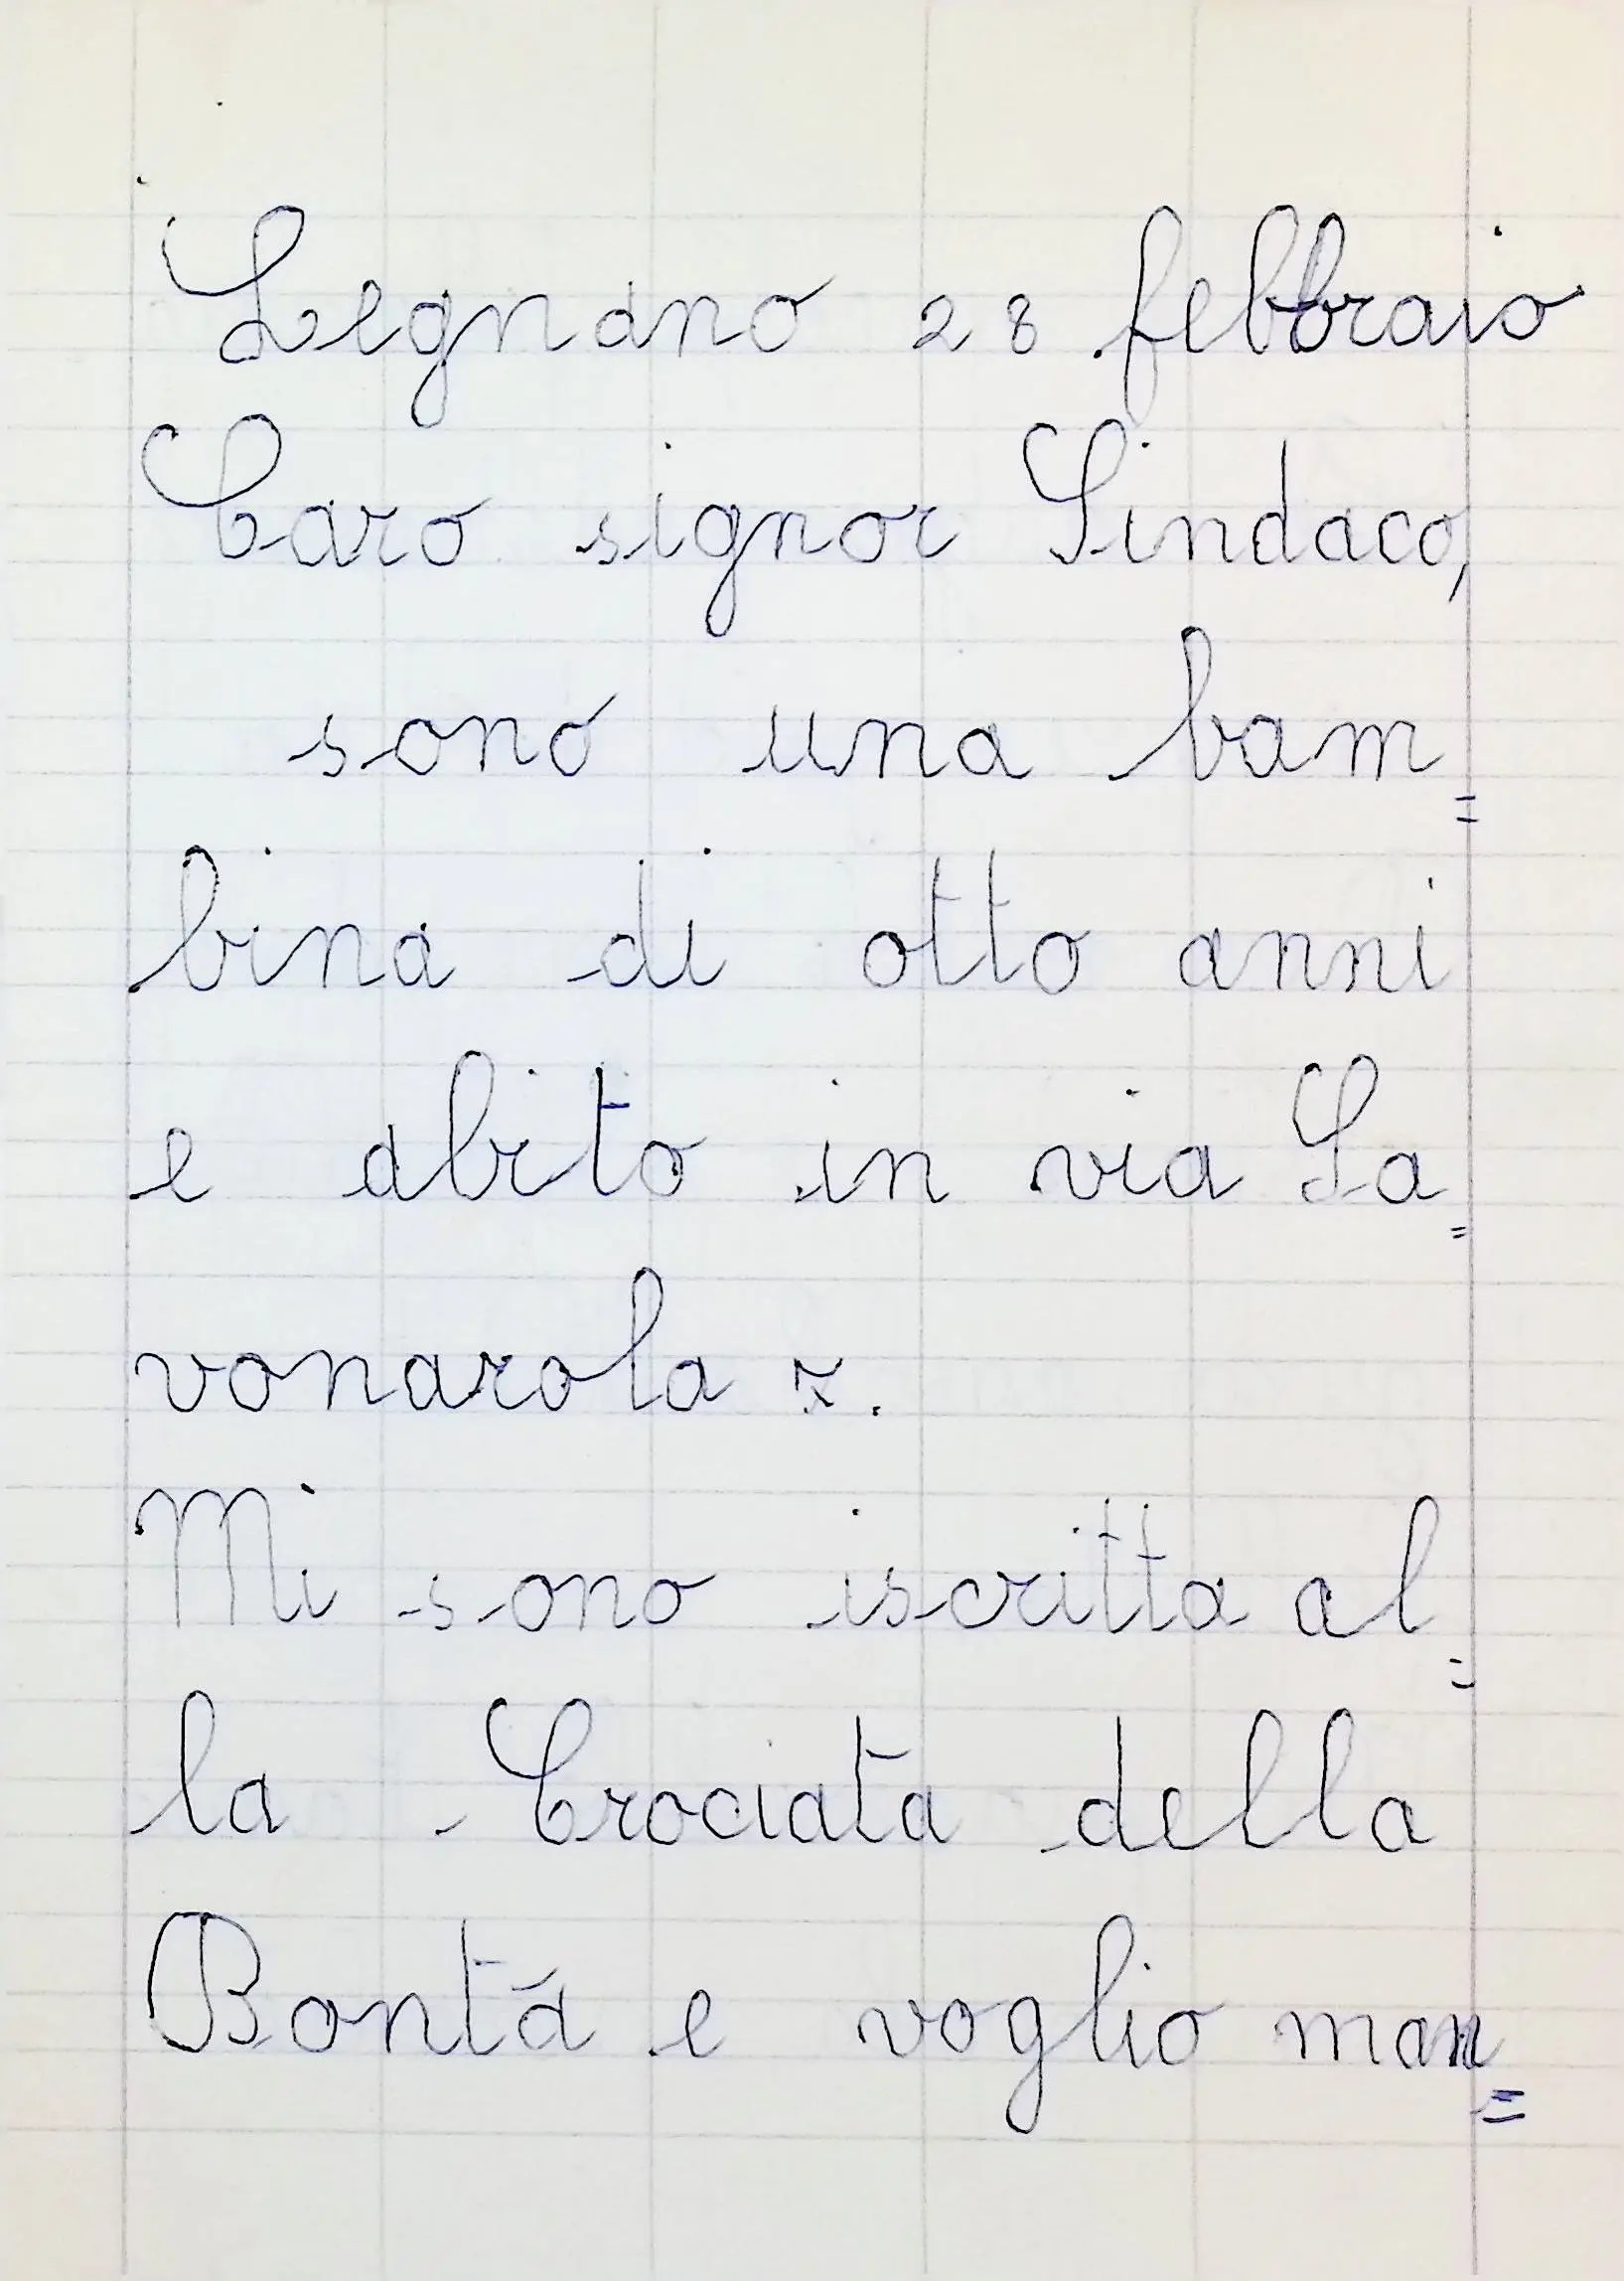 Legnano 28 febbraio
Caro signor Sindaco,
sono una bam=
bina di otto anni
e abito in via Sa=
vonarola 7.
Mi sono iscritta al=
la Crociata della
Bontà e voglio man=